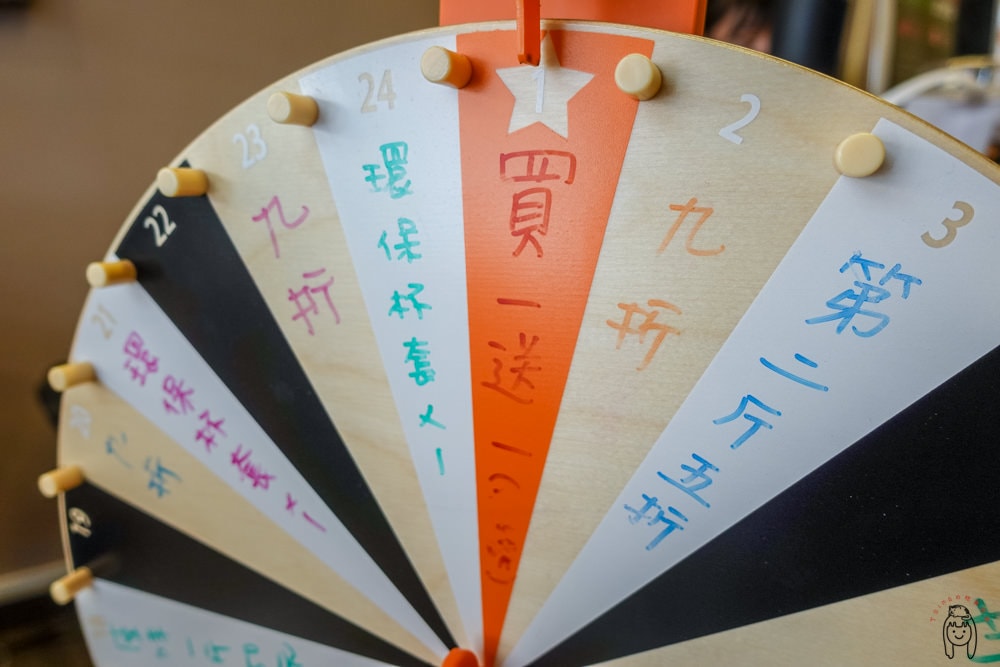 買一送一
2
九折
3
第二斤五折
24
環保杯套×1
23
九折
22
21
環保杯套×1
20
九折
19